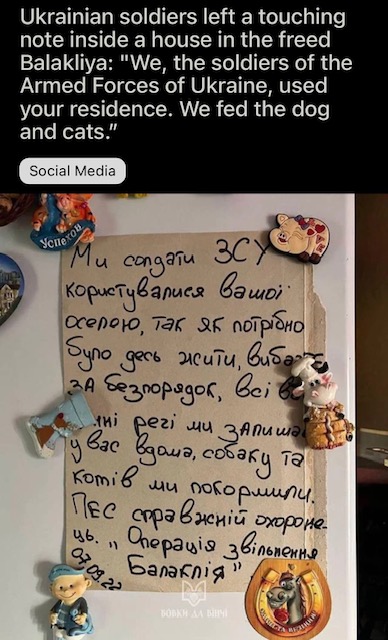 Ukrainian soldiers left a touching
note inside a house in the freed
Balakliya: "We, the soldiers of the
Armed Forces of Ukraine, used
your residence. We fed the dog
and cats.”
Social Media
Успехов
Ми солдати ЗСУ
користувалися вашої
оселою, так як потрібно
було десь жити, вибач
за безпорядок, всі
речі ми запиша
у вас вдома, собаку та
котів ми покормили.
ПЕС справжній охороне-
ць. „ Операція звільнення
07.09.22 Балаклія"
ВОВКИ ДА ВІНЧІ